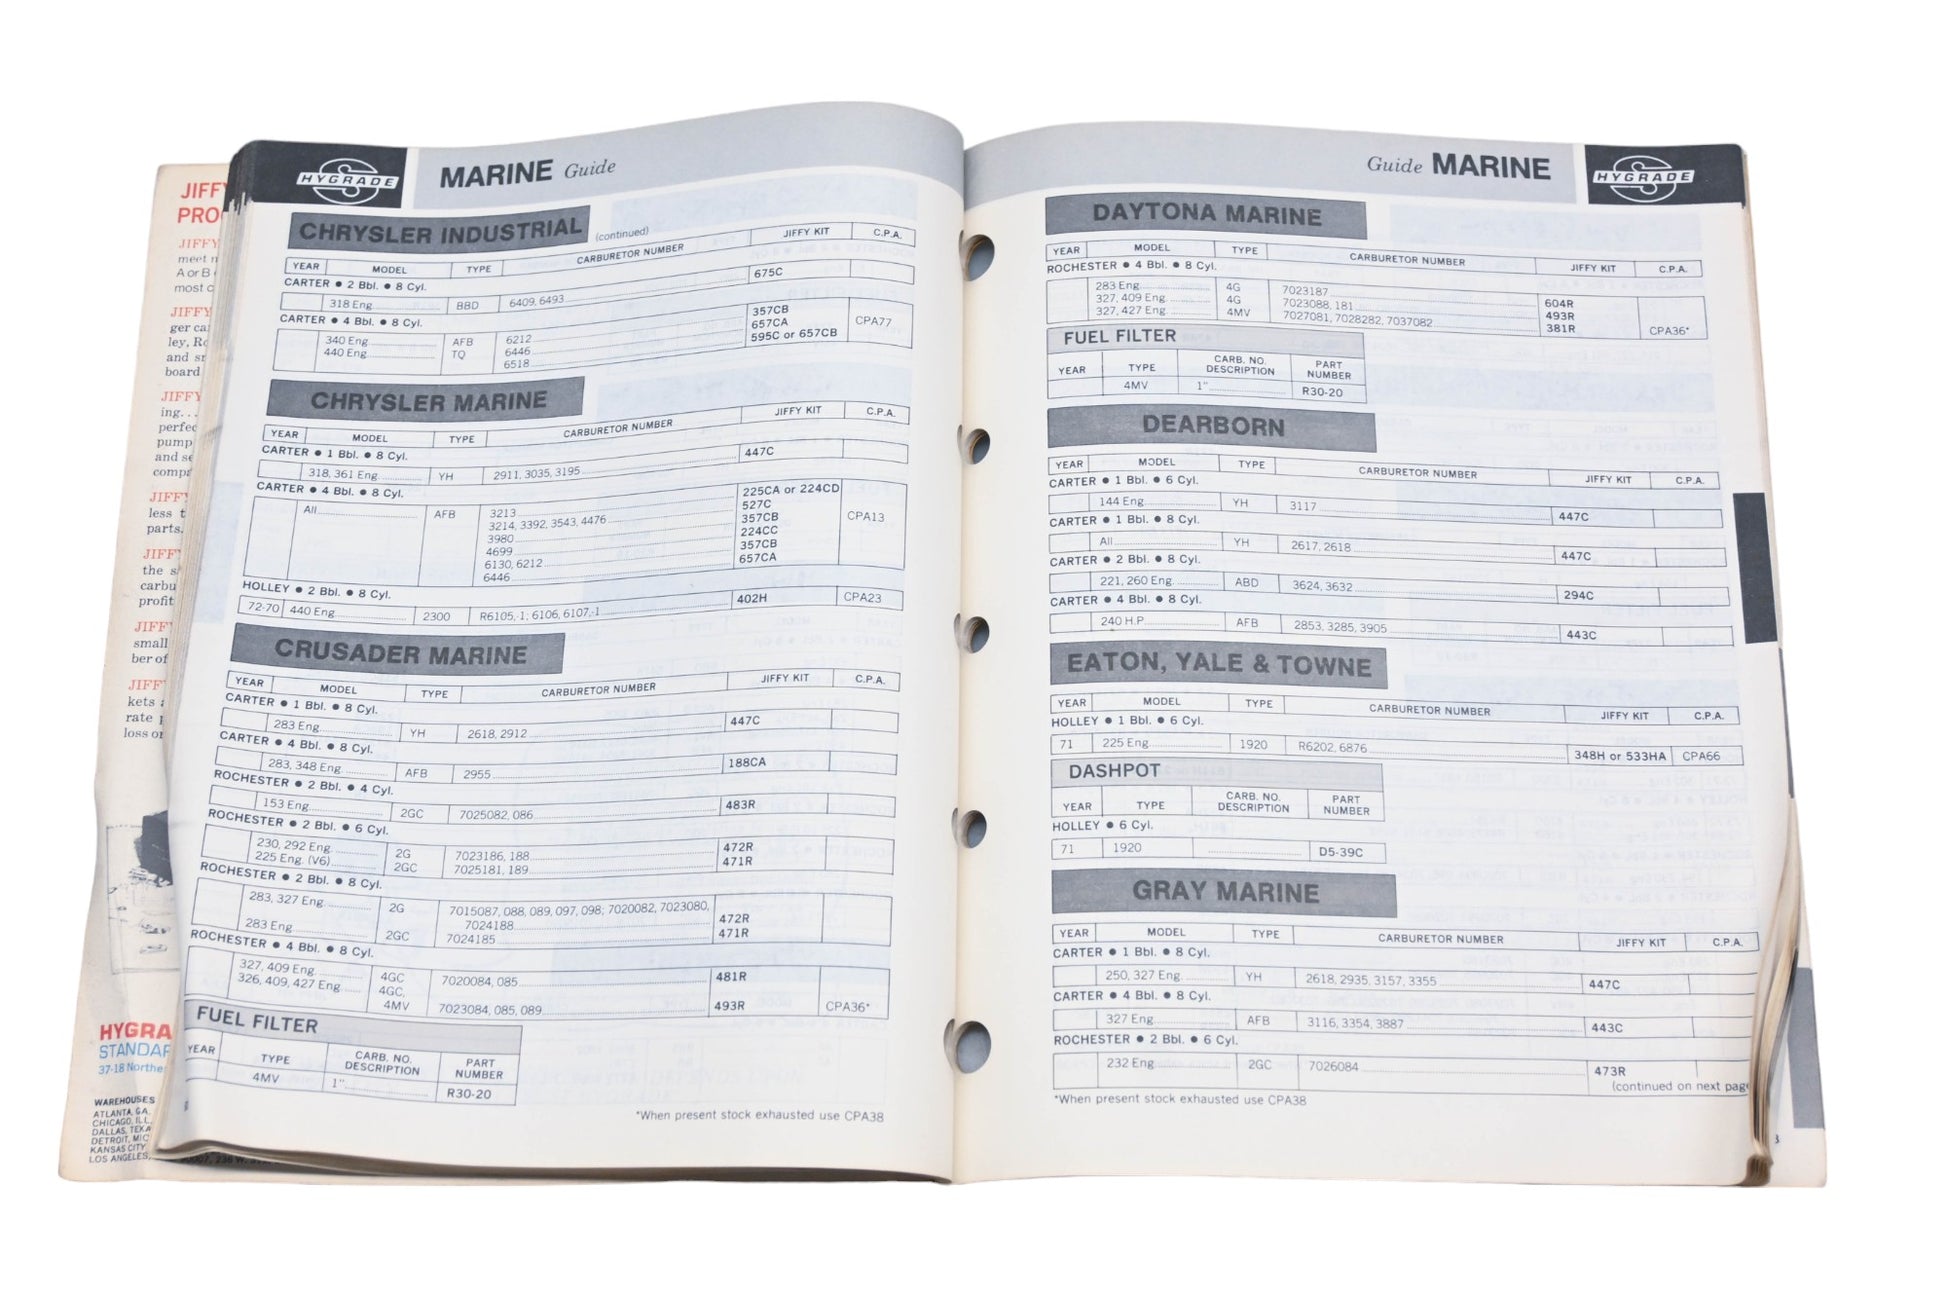 JIFFY
PRO
JIFFY
meet
A or B
most c
JIFFY
ger ca
ley, Ro
and sr
board
JIFFY
ing...
perfec
pump
and se
comp
JIFFY
less t
parts.
JIFF
the s
carbu
profit
JIFF
small
ber of
JIFF
kets a
rate p
loss or
HYGRA
STANDAR
37-18 Northe
WAREHOUSES
ATLANTA, GA.
CHICAGO, ILL.
DALLAS, TEXA
DETROIT, MIC
KANSAS CITY
LOS ANGELES,
HYGRADE
MARINE Guide
CHRYSLER INDUSTRIAL (continued)
YEAR MODEL TYPE CARBURETOR NUMBER JIFFY KIT C.P.A.
CARTER ● 2 Bbl. ● 8 Cyl.
318 Eng. BBD 6409, 6493 675C
CARTER ● 4 Bbl. ● 8 Cyl.
340 Eng. AFB 6212 357CB CPA77
440 Eng. TQ 6446 657CA
6518 595C or 657CB
CHRYSLER MARINE
YEAR MODEL TYPE CARBURETOR NUMBER JIFFY KIT C.P.A.
CARTER ● 1 Bbl. ● 8 Cyl.
318, 361 Eng. YH 2911, 3035, 3195 447C
CARTER ● 4 Bbl. ● 8 Cyl.
All AFB 3213 225CA or 224CD CPA13
3214, 3392, 3543, 4476 527C
3980 357CB
4699 224CC
6130, 6212 357CB
6446 657CA
HOLLEY ● 2 Bbl. ● 8 Cyl.
72-70 440 Eng. 2300 R6105,-1; 6106, 6107,-1 402H CPA23
CRUSADER MARINE
YEAR MODEL TYPE CARBURETOR NUMBER JIFFY KIT C.P.A.
CARTER ● 1 Bbl. ● 8 Cyl.
283 Eng. YH 2618, 2912 447C
CARTER ● 4 Bbl. ● 8 Cyl.
283, 348 Eng. AFB 2955 188CA
ROCHESTER ● 2 Bbl. ● 4 Cyl.
153 Eng. 2GC 7025082, 086 483R
ROCHESTER ● 2 Bbl. ● 6 Cyl.
230, 292 Eng. 2G 7023186, 188 472R
225 Eng. (V6) 2GC 7025181, 189 471R
ROCHESTER ● 2 Bbl. ● 8 Cyl.
283, 327 Eng. 2G 7015087, 088, 089, 097, 098; 7020082, 7023080,
7024188 472R
283 Eng. 2GC 7024185 471R
ROCHESTER ● 4 Bbl. ● 8 Cyl.
327, 409 Eng. 4GC 7020084, 085 481R
326, 409, 427 Eng. 4GC,
4MV 7023084, 085, 089 493R CPA36*
FUEL FILTER
YEAR TYPE CARB. NO. DESCRIPTION PART NUMBER
4MV 1" R30-20
*When present stock exhausted use CPA38
Guide MARINE
HYGRADE
DAYTONA MARINE
YEAR MODEL TYPE CARBURETOR NUMBER JIFFY KIT C.P.A.
ROCHESTER ● 4 Bbl. ● 8 Cyl.
283 Eng. 4G 7023187 604R
327, 409 Eng. 4G 7023088, 181 493R
327, 427 Eng. 4MV 7027081, 7028282, 7037082 381R CPA36*
FUEL FILTER
YEAR TYPE CARB. NO. DESCRIPTION PART NUMBER
4MV 1" R30-20
DEARBORN
YEAR MODEL TYPE CARBURETOR NUMBER JIFFY KIT C.P.A.
CARTER ● 1 Bbl. ● 6 Cyl.
144 Eng. YH 3117 447C
CARTER ● 1 Bbl. ● 8 Cyl.
All YH 2617, 2618 447C
CARTER ● 2 Bbl. ● 8 Cyl.
221, 260 Eng. ABD 3624, 3632 294C
CARTER ● 4 Bbl. ● 8 Cyl.
240 H.P. AFB 2853, 3285, 3905 443C
EATON, YALE & TOWNE
YEAR MODEL TYPE CARBURETOR NUMBER JIFFY KIT C.P.A.
HOLLEY ● 1 Bbl. ● 6 Cyl.
71 225 Eng. 1920 R6202, 6876 348H or 533HA CPA66
DASHPOT
YEAR TYPE CARB. NO. DESCRIPTION PART NUMBER
HOLLEY ● 6 Cyl.
71 1920 D5-39C
GRAY MARINE
YEAR MODEL TYPE CARBURETOR NUMBER JIFFY KIT C.P.A.
CARTER ● 1 Bbl. ● 8 Cyl.
250, 327 Eng. YH 2618, 2935, 3157, 3355 447C
CARTER ● 4 Bbl. ● 8 Cyl.
327 Eng. AFB 3116, 3354, 3887 443C
ROCHESTER ● 2 Bbl. ● 6 Cyl.
232 Eng. 2GC 7026084 473R
(continued on next page
*When present stock exhausted use CPA38
3